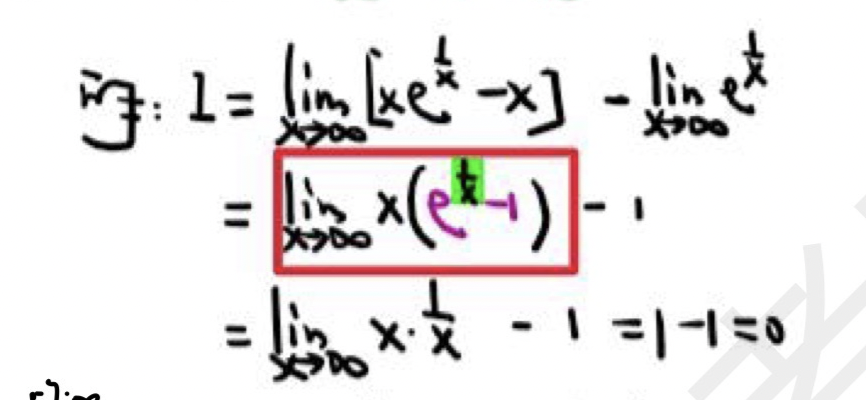 I = lim x→∞ [xe^(1/x) - x] - lim x→∞ e^(1/x)
= lim x→∞ x(e^(1/x) - 1) - 1
= lim x→∞ x·1/x - 1 = 1 - 1 = 0